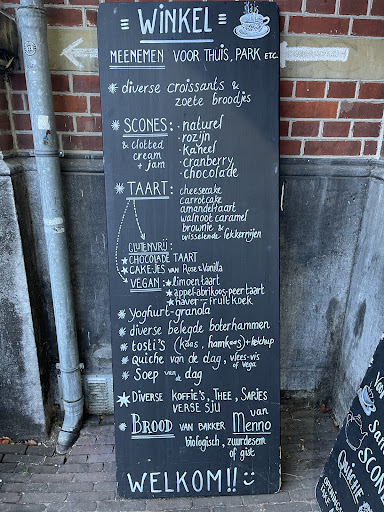 = WINKEL =
MEENEMEN VOOR THUIS, PARK ETC.
* diverse croissants &
zoete broodjes
* SCONES: · naturel
& clotted cream + jam
· rozijn
· kaneel
· cranberry
· chocolade
* TAART: cheesecake
carrotcake
amandeltaart
walnoot caramel
brownie &
wisselende lekkernijen
GLUTENVRIJ:
* CHOCOLADE TAART
* CAKEJES van Rose & Vanilla
VEGAN: * limoentaart
* appel-abrikoos-peer taart
* haver-fruit koek
* Yoghurt-granola
* diverse belegde boterhammen
* tosti's (kaas, ham kaas) + ketchup
* Quiche van de dag, vlees-vis of vega
* Soep van de dag
* DIVERSE KOFFIE'S, THEE, SAPJES
VERSE SJU
* BROOD VAN BAKKER van Menno
biologisch, zuurdesem
of gist
WELKOM!!
SCON
QUICHE